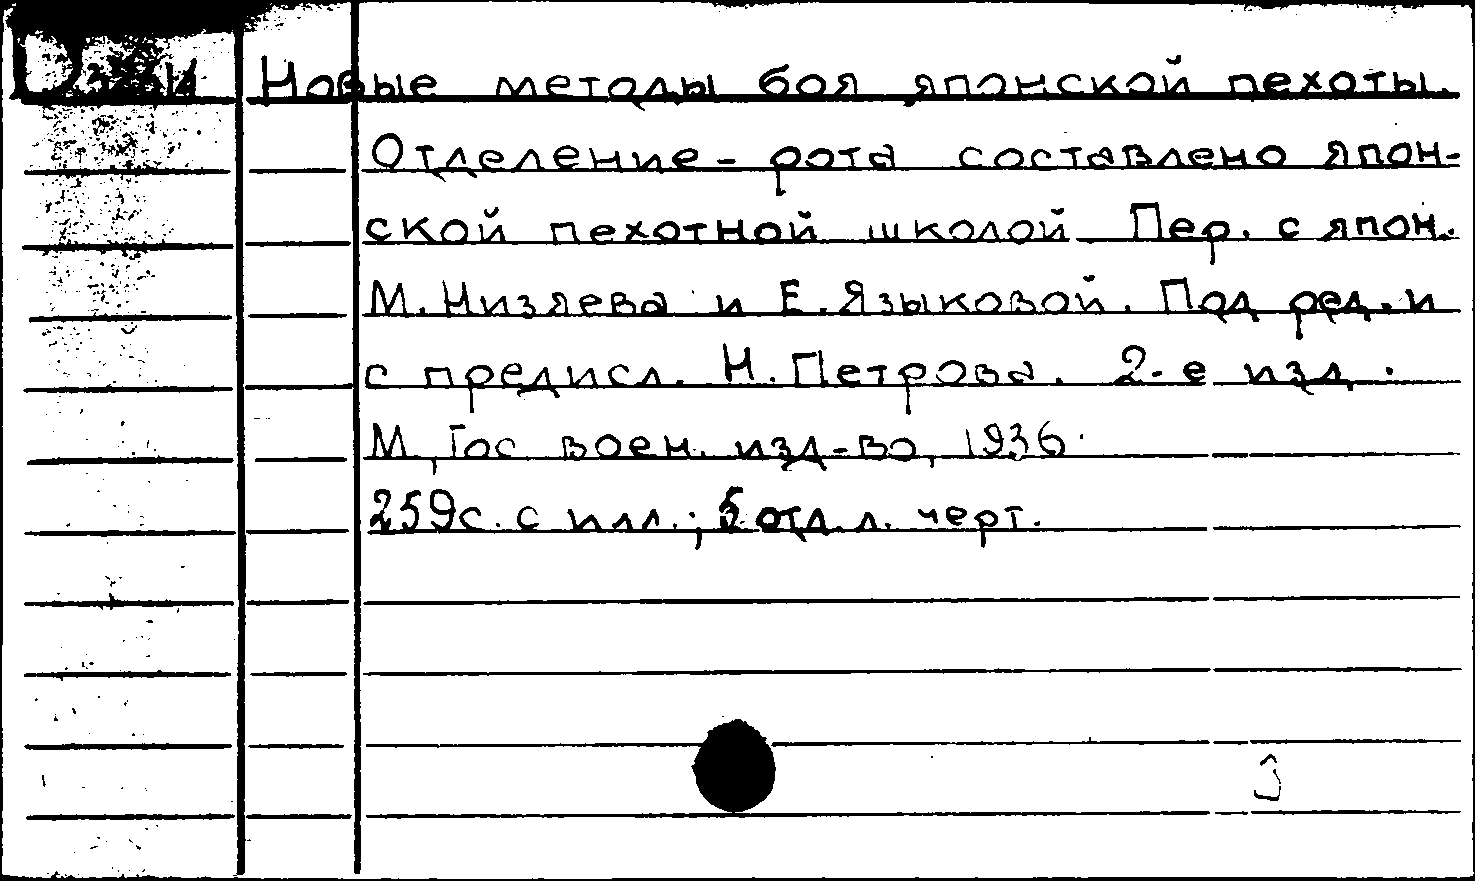 Новые методы боя японской пехоты.
Отделение - рота составлено япон-
ской пехотной школой Пер. с япон.
М. Низяева и Е. Языковой. Под ред. и
с предисл. Н. Петрова. 2-е изд.
М, Гос воен. изд-во, 1936.
259с. с илл.; 5 отд. л. черт.
3